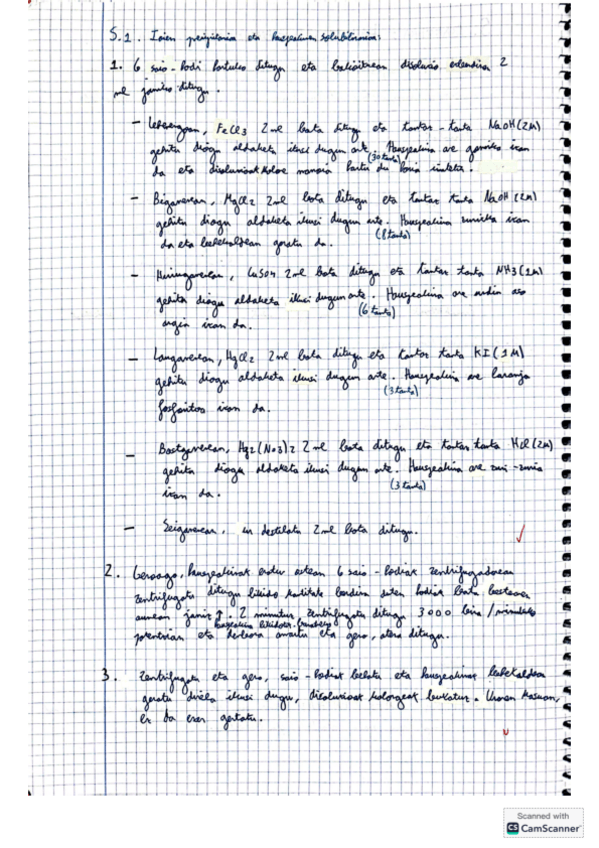 5.1. Ioien prezipitazioa eta hauspeakinen solubilizazioa:
1. 6 saio-hodi hartuko ditugu eta bakoitzean disoluzio ezberdina 2
ml jarriko ditugu.
- Lehenengoan, FeCl3 2 ml bota ditugu eta tantaz-tanta NaOH(2M)
gehitu diogu aldaketa ikusi dugun arte. Hauspeakina ore izan
(30 tanta)
da eta disoluzioak kolore
- Bigarrenean, MgCl2 2 ml bota ditugu eta tantaz tanta NaOH (2M)
gehitu diogu aldaketa ikusi dugun arte. Hauspeakina zurixka izan
(8 tanta)
da eta behekaldean geratu da.
- Hirugarrenean, CuSO4 2 ml bota ditugu eta tantaz tanta NH3(1M)
gehitu diogu aldaketa ikusi dugun arte. Hauspeakina ore urdin oso
(6 tanta)
argia izan da.
- Laugarrenean, HgCl2 2 ml bota ditugu eta tantaz tanta KI (1M)
gehitu diogu aldaketa ikusi dugun arte. Hauspeakina ore laranja
(3 tanta)
fosforitoa izan da.
- Bostgarrenean, Hg2(NO3)2 2 ml bota ditugu eta tantaz tanta HCl (2M)
gehitu diogu aldaketa ikusi dugun arte. Hauspeakina ore zuri-zuria
(3 tanta)
izan da.
- Seigarrenean, ur destilatu 2 ml bota ditugu.
2. Geroago, hauspeakinak eratu ostean 6 saio-hodiak zentrifugadorean
zentrifugatu ditugu likido kantitate berdina duten hodiak bata bestearen
aurrean jarriz. 2 minutuz zentrifugatu ditugu 3000 bira/minutuko
eta eta gero, atera ditugu.
3. Zentrifugatu eta gero, saio-hodiak behatu eta hauspeakinak behekaldean
geratu direla ikusi dugu, disoluzioak kolorgeak bihurtuz. Uraren kasuan,
ez da ezer gertatu.
Scanned with
CS CamScanner